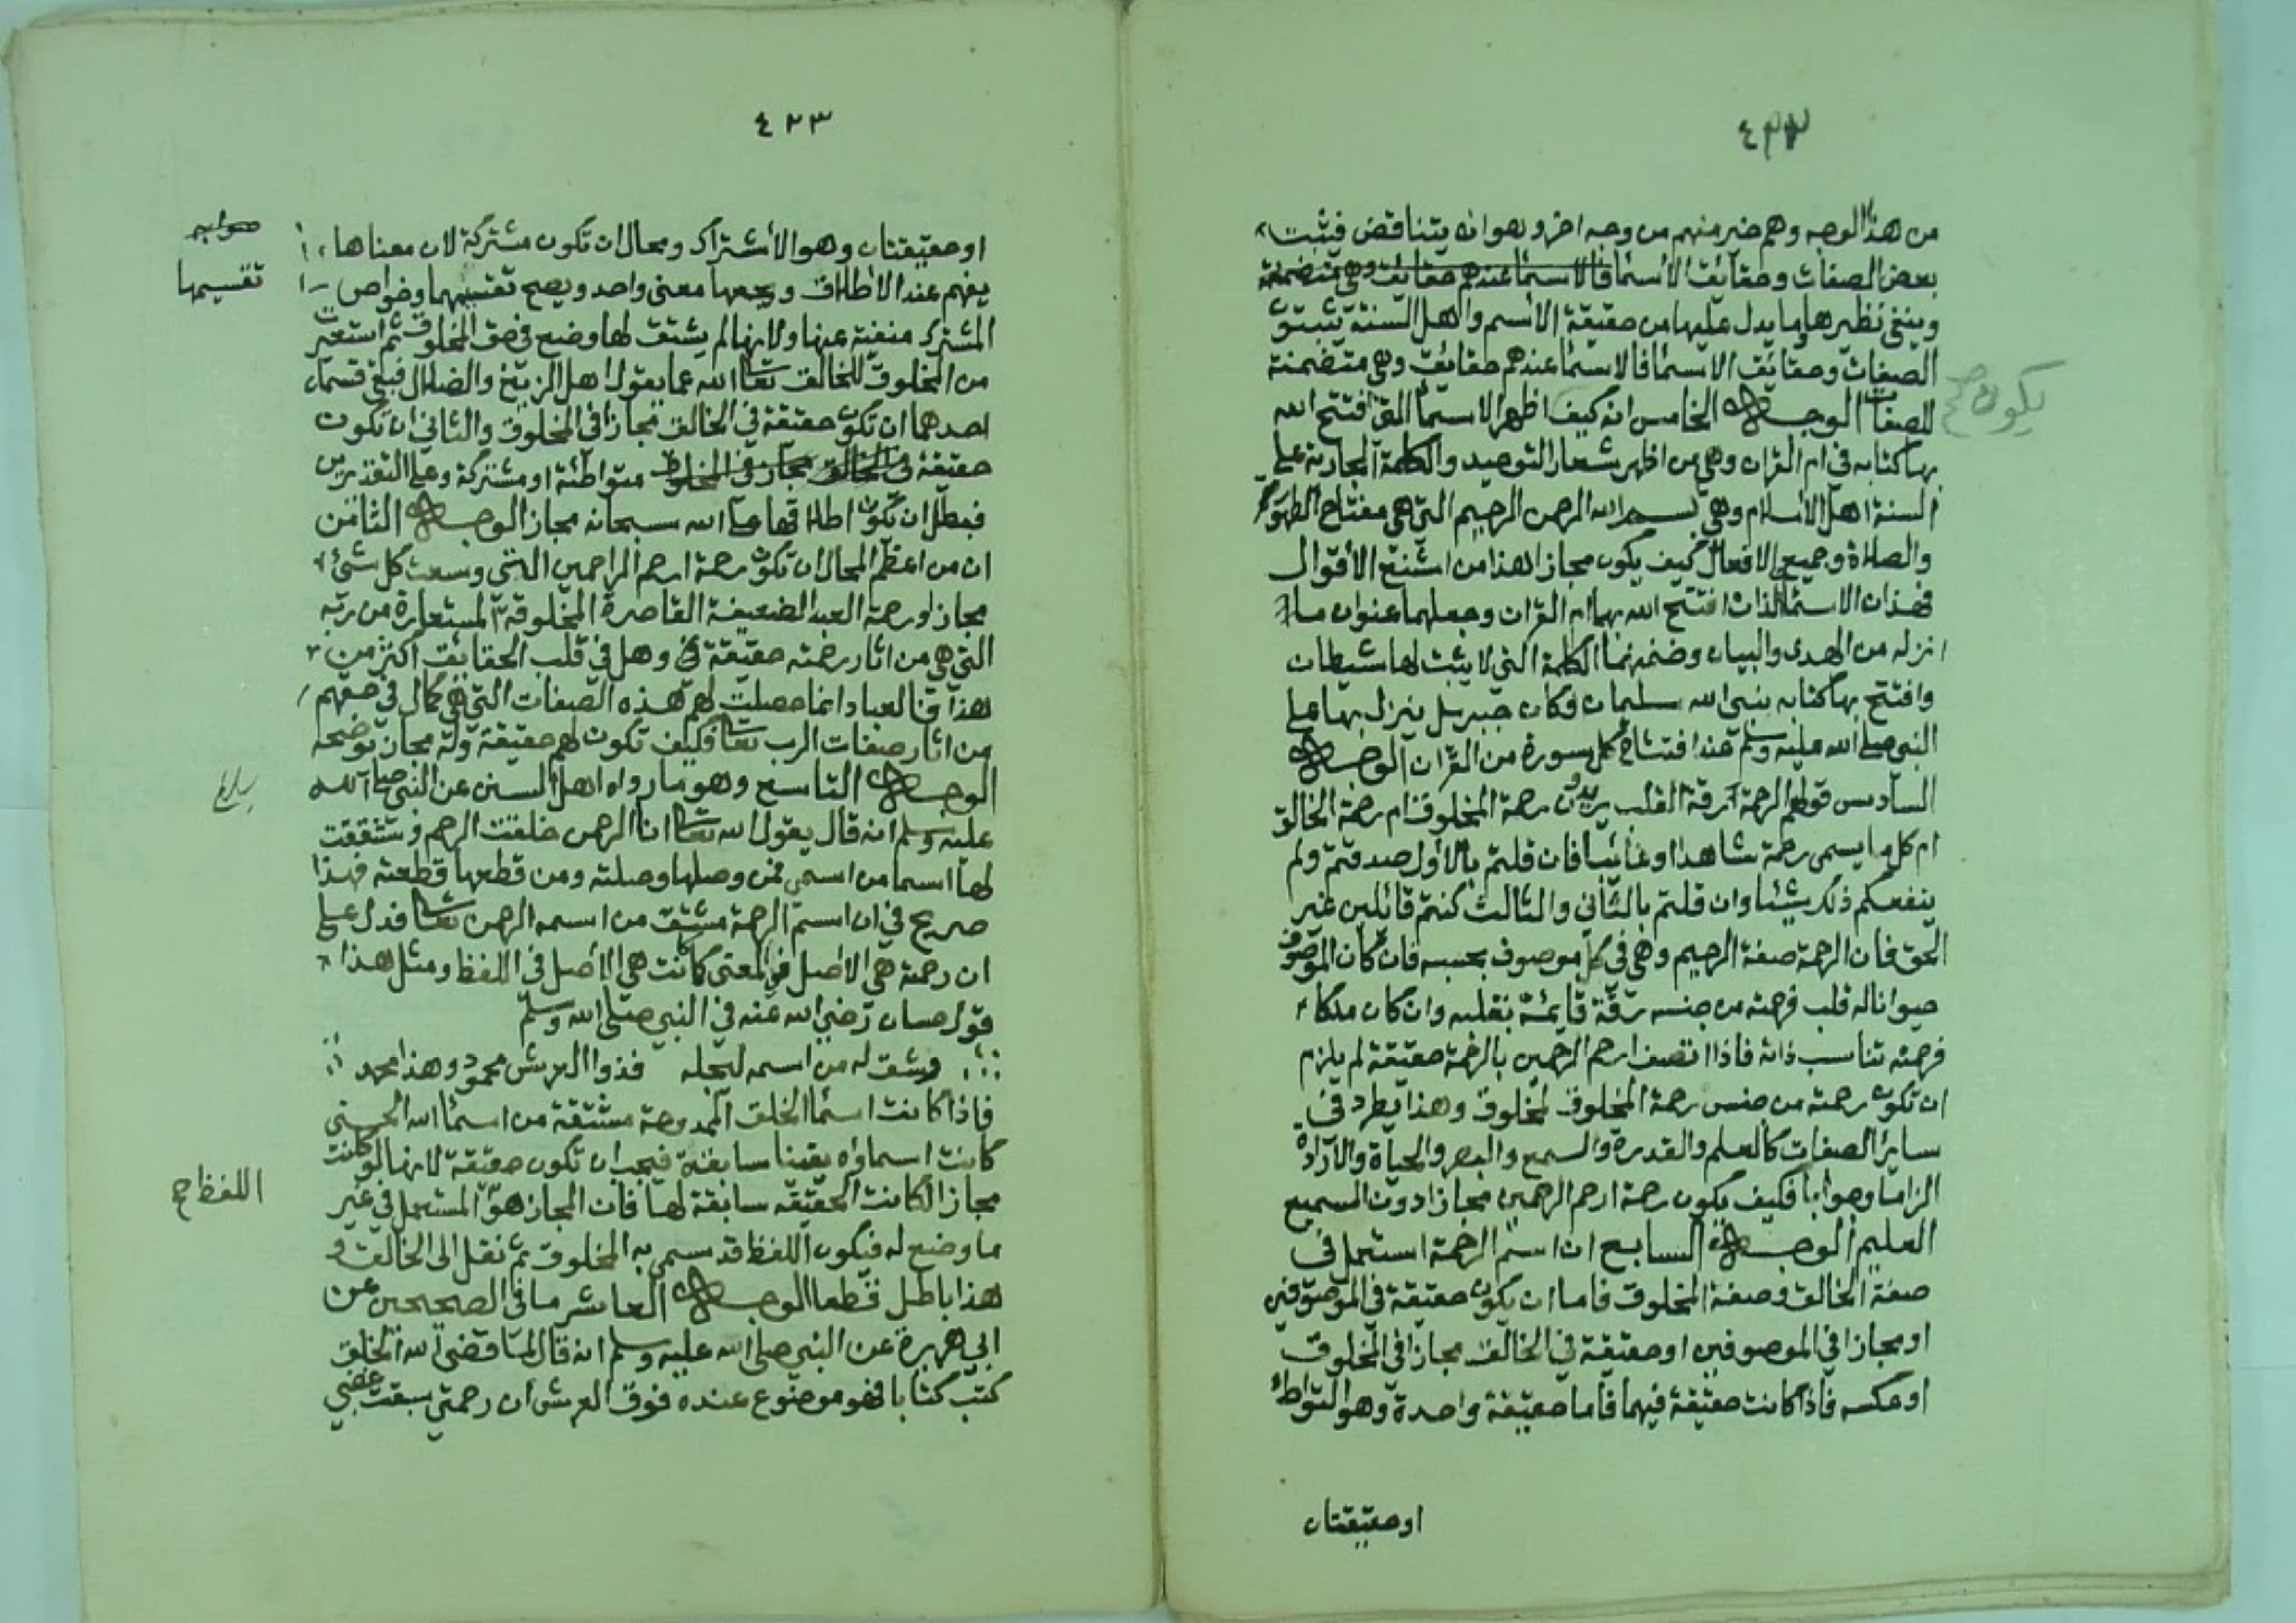 ٤٢٢
من هذا الوجه وهم خير منهم من وجه اخر وهو انه يتناقض فيثبت
بعض الصفات وحقايق الاسما فالاسما عندهم حقايق وهي متضمنة
وينفي نظيرها وما يدل عليها من حقيقة الاسم واهل السنة يثبتون
الصفات وحقايق الاسما فالاسما عندهم حقايق وهي متضمنة
للصفات الوجه الخامس انه كيف اظهر الاسما التي افتتح الله
يكون صح
بها كتابه في ام القران وهي من اظهر شعار التوحيد والكلمة الجارية على
السنة اهل الاسلام وهي بسم الله الرحمن الرحيم التي هي مفتاح الطهور
والصلاة وجميع الافعال كيف يكون مجازا هذا من اشنع الاقوال
فهذان الاسمان الذان افتتح الله بهما ام القران وجعلهما عنوان ما
انزله من الهدى والبيان وضمنهما الكلمة التي لا يثبت لها شيطان
وافتتح بها كتابه نبي الله سليمان وكان جبريل ينزل بها على
النبي صلى الله عليه وسلم عند افتتاح كل سورة من القران الوجه
السادس قولهم الرحمة رقة القلب يريدون رحمة المخلوق ام رحمة الخالق
ام كل ما يسمى رحمة شاهدا او غائبا فان قلتم بالاول صدقتم ولم
ينفعكم ذلك شيئا وان قلتم بالثاني والثالث كنتم قائلين غير
الحق فان الرحمة صفة الرحيم وهي في كل موصوف بحسبه فان كان الموصوف
حيوانا له قلب فرحمته من جنسه رقة قايمة بقلبه وان كان ملكا
فرحمته تناسب ذاته فاذا اتصف ارحم الرحمين بالرحمة حقيقة لم يلزم
ان تكون رحمته من جنس رحمة المخلوق لمخلوق وهذا يطرد في
ساير الصفات كالعلم والقدرة والسمع والبصر والحياة والارادة
الزاما وجوابا فكيف يكون رحمة ارحم الرحمين مجازا دون السميع
العليم الوجه السابع ان اسم الرحمة استعمل في
صفة الخالق وصفة المخلوق فاما ان يكون حقيقة في الموصوفين
او مجازا في الموصوفين او حقيقة في الخالق مجازا في المخلوق
او عكسه فاذا كانت حقيقة فيهما فاما حقيقة واحدة وهو التواطئ
او حقيقتان
٤٢٣
او حقيقتان وهو الاشتراك ومحال ان تكون مشتركة لان معناها
يفهم عند الاطلاق ويجمعها معنى واحد ويصح تقسيمها وخواص
صوابه
تقسيمها
المشترك منفية عنها ولانها لم يشتق لها وضع في حق المخلوق ثم استعيرت
من المخلوق للخالق تعالى الله عما يقول اهل الزيغ والضلال فبقي قسمان
احدهما ان تكون حقيقة في الخالق مجازا في المخلوق والثاني ان تكون
حقيقة في الخالق مجاز في المخلوق متواطئة او مشتركة وعلى التقديرين
فبطل ان تكون اطلاقها على الله سبحانه مجاز الوجه الثامن
ان من اعظم المحال ان تكون رحمة ارحم الراحمين التي وسعت كل شئ
مجازا ورحمة العبد الضعيفة القاصرة المخلوقة المستعارة من ربه
التي هي من اثار رحمته حقيقة وهل في قلب الحقايق اكثر من
هذا فالعباد انما حصلت لهم هذه الصفات التي هي كمال في حقهم
من اثار صفات الرب تعالى فكيف تكون لهم حقيقة وله مجاز يوضحه
الوجه التاسع وهو ما رواه اهل السنن عن النبي صلى الله
عليه وسلم انه قال يقول الله تعالى انا الرحمن خلقت الرحم وشققت
لها اسما من اسمي فمن وصلها وصلته ومن قطعها قطعته فهذا
صريح في ان اسم الرحمة مشتق من اسمه الرحمن تعالى فدل على
ان رحمة هي الاصل في المعنى كانت هي الاصل في اللفظ ومثل هذا
قول حسان رضي الله عنه في النبي صلى الله وسلم
وشق له من اسمه ليجله فذوا العرش محمود وهذا محمد
فاذا كانت اسما الخلق الممدوحة مشتقة من اسما الله الحسنى
كانت اسماؤه يقينا سابقة فيجب ان تكون حقيقة لانها لو كانت
مجازا لكانت الحقيقه سابقة لها فان المجاز هو المستعمل في غير
اللفظ صح
ما وضع له فيكون اللفظ قد سمى به المخلوق ثم نقل الى الخالق و
هذا باطل قطعا الوجه العاشر ما في الصحيحين عن
ابي هريرة عن النبي صلى الله عليه وسلم انه قال لما قضى الله الخلق
كتب كتابا فهو موضوع عنده فوق العرش ان رحمتي سبقت غضبي